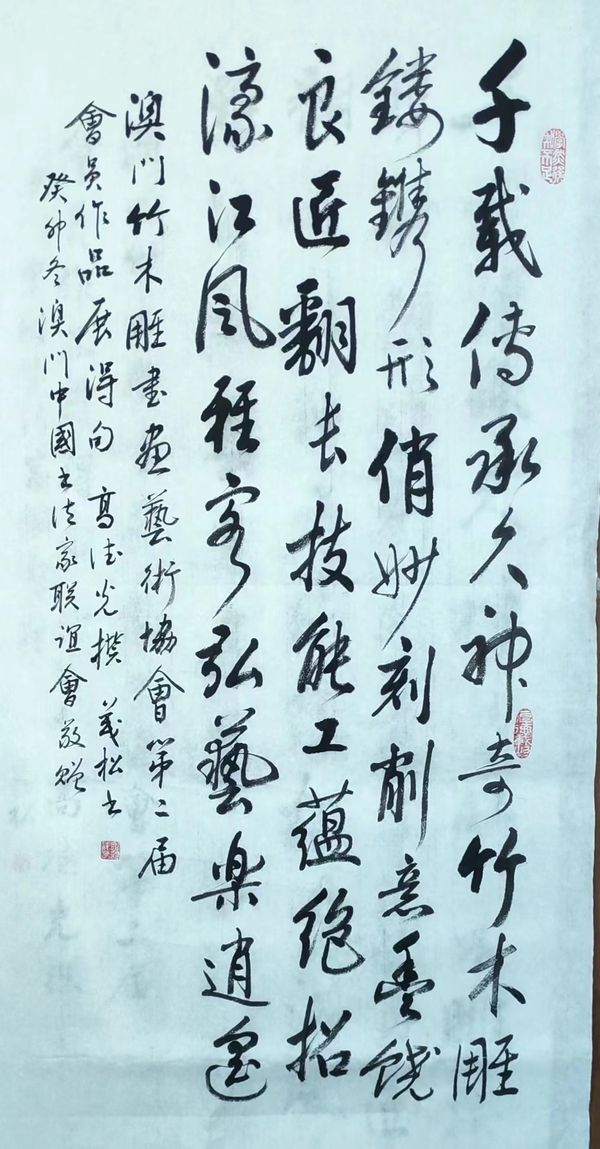 千載傳承久神奇竹木雕
鏤鐫形俏妙刻削意豐饒
良匠翻长技能工蘊絕招
濠江風雅客弘藝楽逍遙
澳门竹木雕書画藝術協會第二届
會員作品展得句 高德光撰 義松书
癸卯冬澳门中國书法家联誼會敬贈